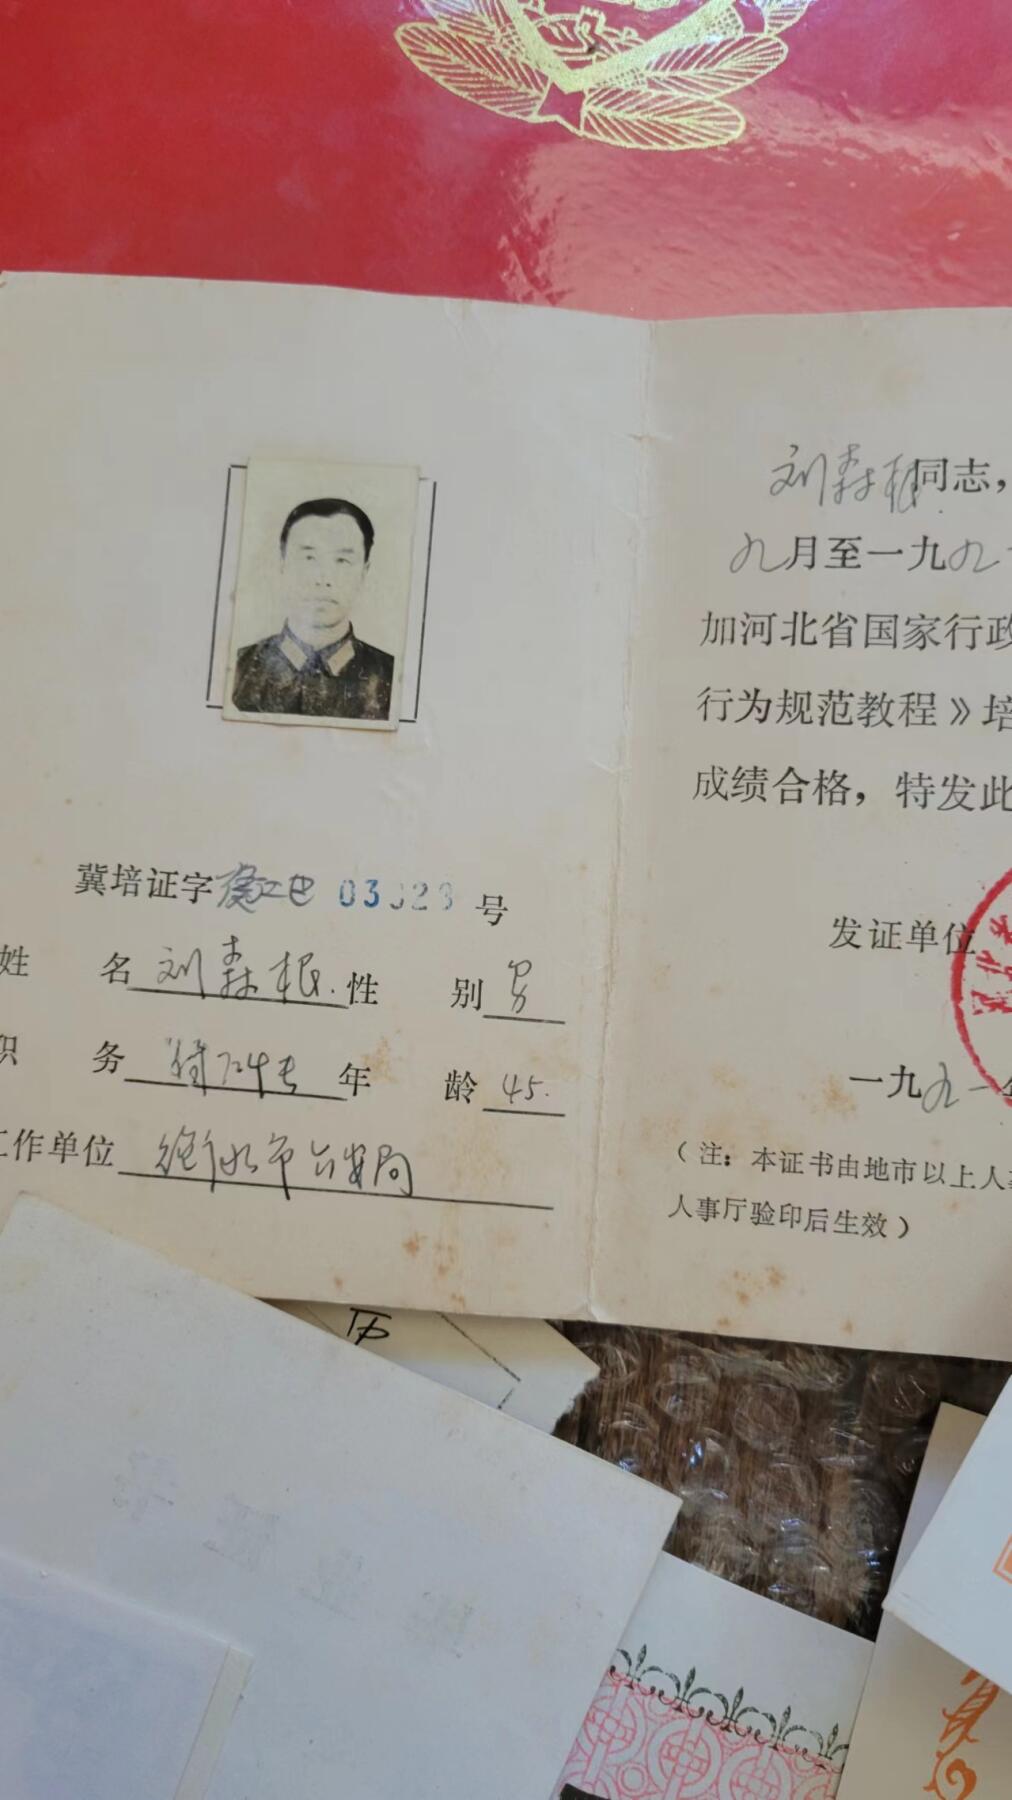 冀培证字 03023 号
姓 名 刘森根 性 别 男
职 务 年 龄 45.
工作单位 衡水市公安局
刘森根同志，
九月至一九九一
加河北省国家行政
行为规范教程》培
成绩合格，特发此
发证单位
一九九一年
（注：本证书由地市以上人事
人事厅验印后生效）